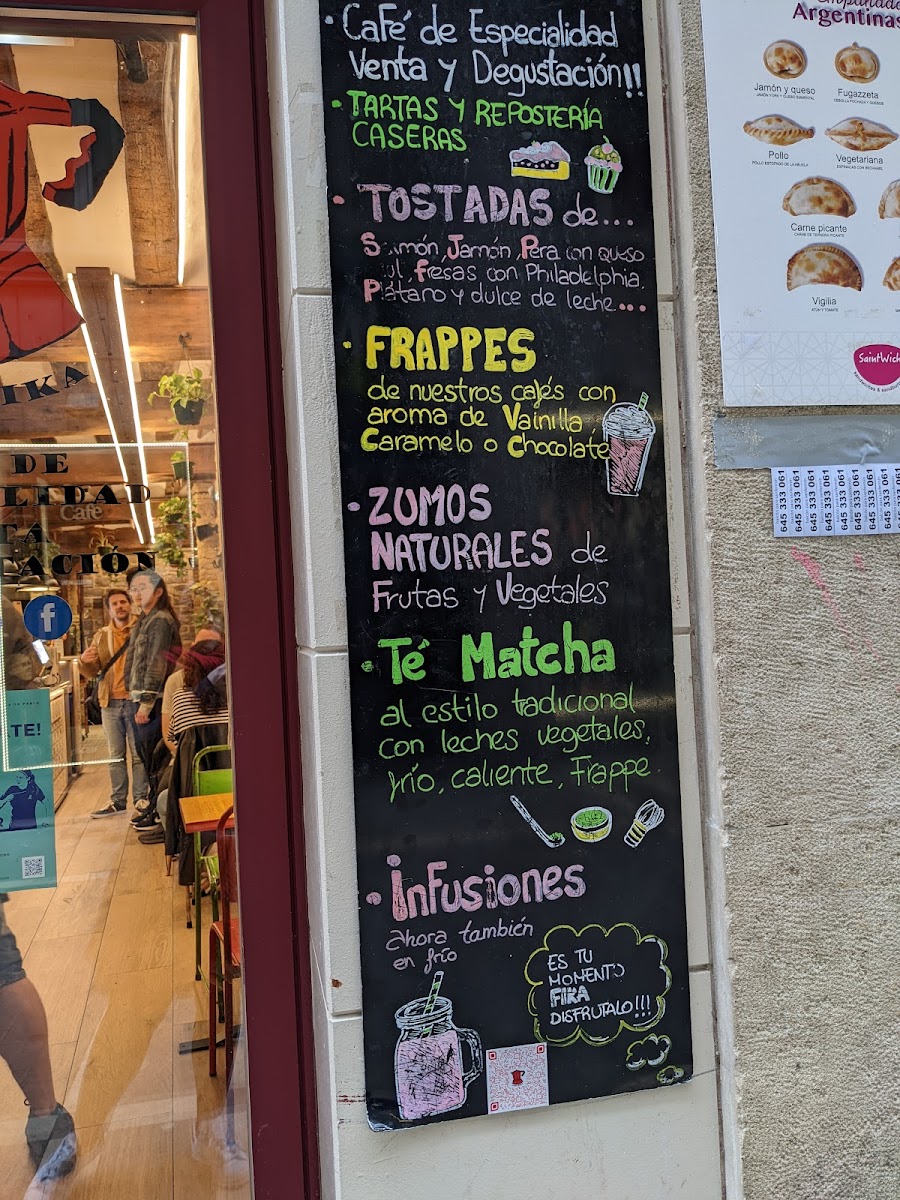 IKA
DE
LIDAD
Café
TA
ACIÓN
f
TE!
• Café de Especialidad
Venta y Degustación!!
• TARTAS Y REPOSTERÍA
CASERAS
• TOSTADAS de...
Jamón, Pera con queso
Fresas con Philadelphia,
Plátano y dulce de leche...
• FRAPPES
de nuestros cafés con
aroma de Vainilla,
Caramelo o Chocolate
• ZUMOS
NATURALES de
Frutas y Vegetales
• Té Matcha
al estilo tradicional
con leches vegetales,
frío, caliente, Frappe
• infusiones
ahora también
en frío
ES TU
MOMENTO
FIKA
DISFRUTALO!!!
Argentinas
Jamón y queso
Fugazzeta
Pollo
POLLO ESTOFADO DE LA ABUELA
Vegetariana
ESPINACAS CON BECHAMEL
Carne picante
CARNE DE TERNERA PICANTE
Vigilia
ATÚN Y TOMATE
SaintWich
645 333 061
645 333 061
645 333 061
645 333 061
645 333 061
645 333 061
645 333 061
645 333 061